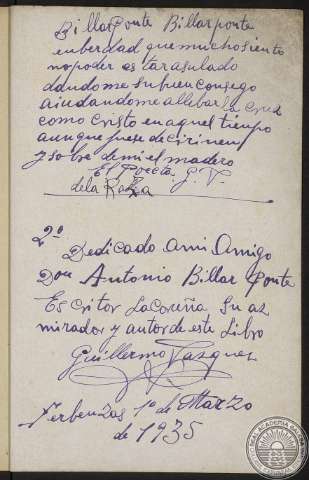 Billar Ponte Billarponte
enberdad que mucho siento
no poder estar asulado
dandome su buen consego
aiudandome allebar la crus
como Cristo en aquel tienpo
aunque fuese de cirineu
y sobre demi el madero
El Poecta G. V.
dela Raza
2º
Dedicado ami Amigo
Don Antonio Billar Ponte
Escritor LaCoruña Su ad
mirador y autor de este Libro
Guillermo Vazquez
Ferbenzas 1º de Marzo
de 1935
REAL ACADEMIA GALEGA